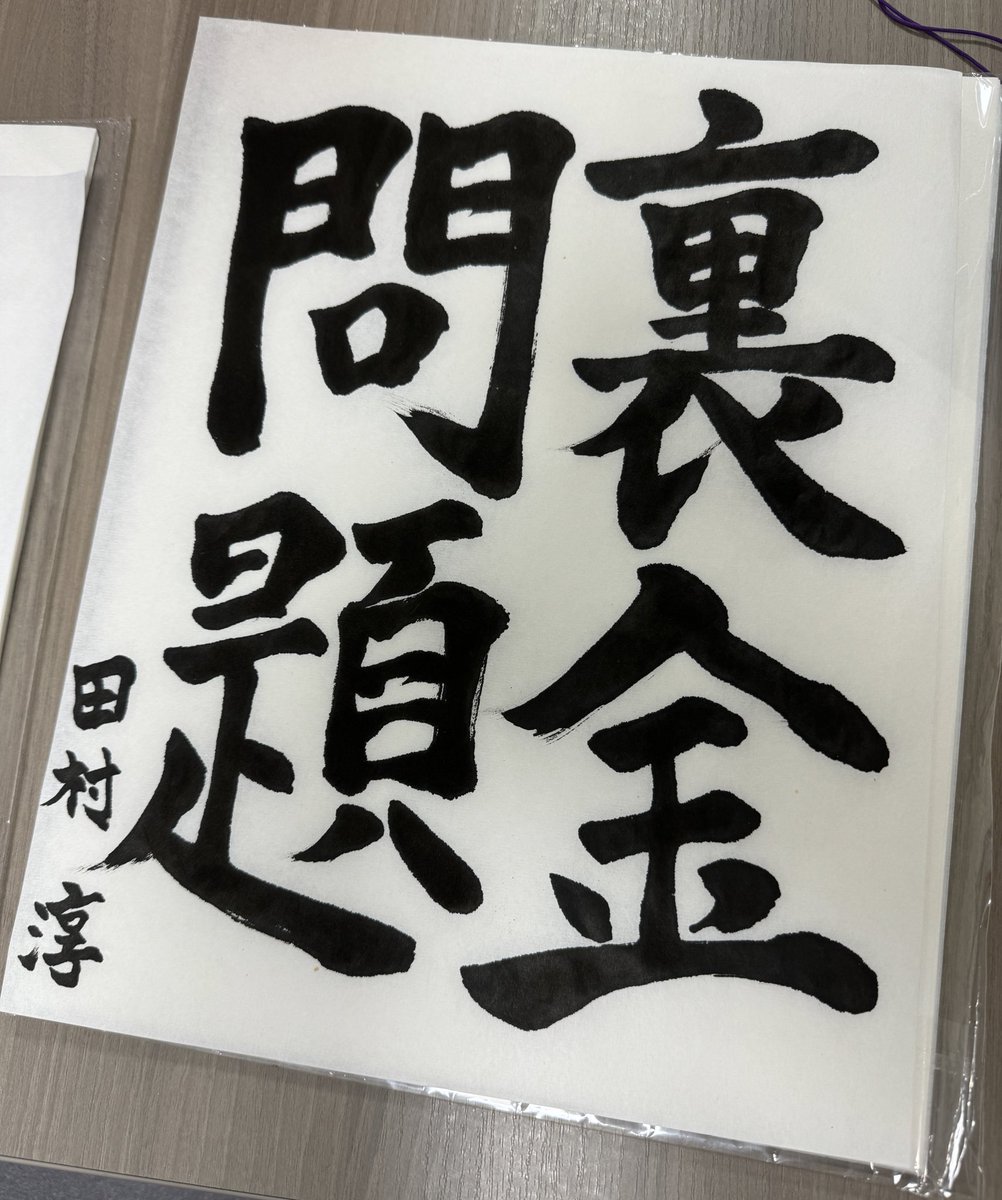 裏金
問題
田村淳